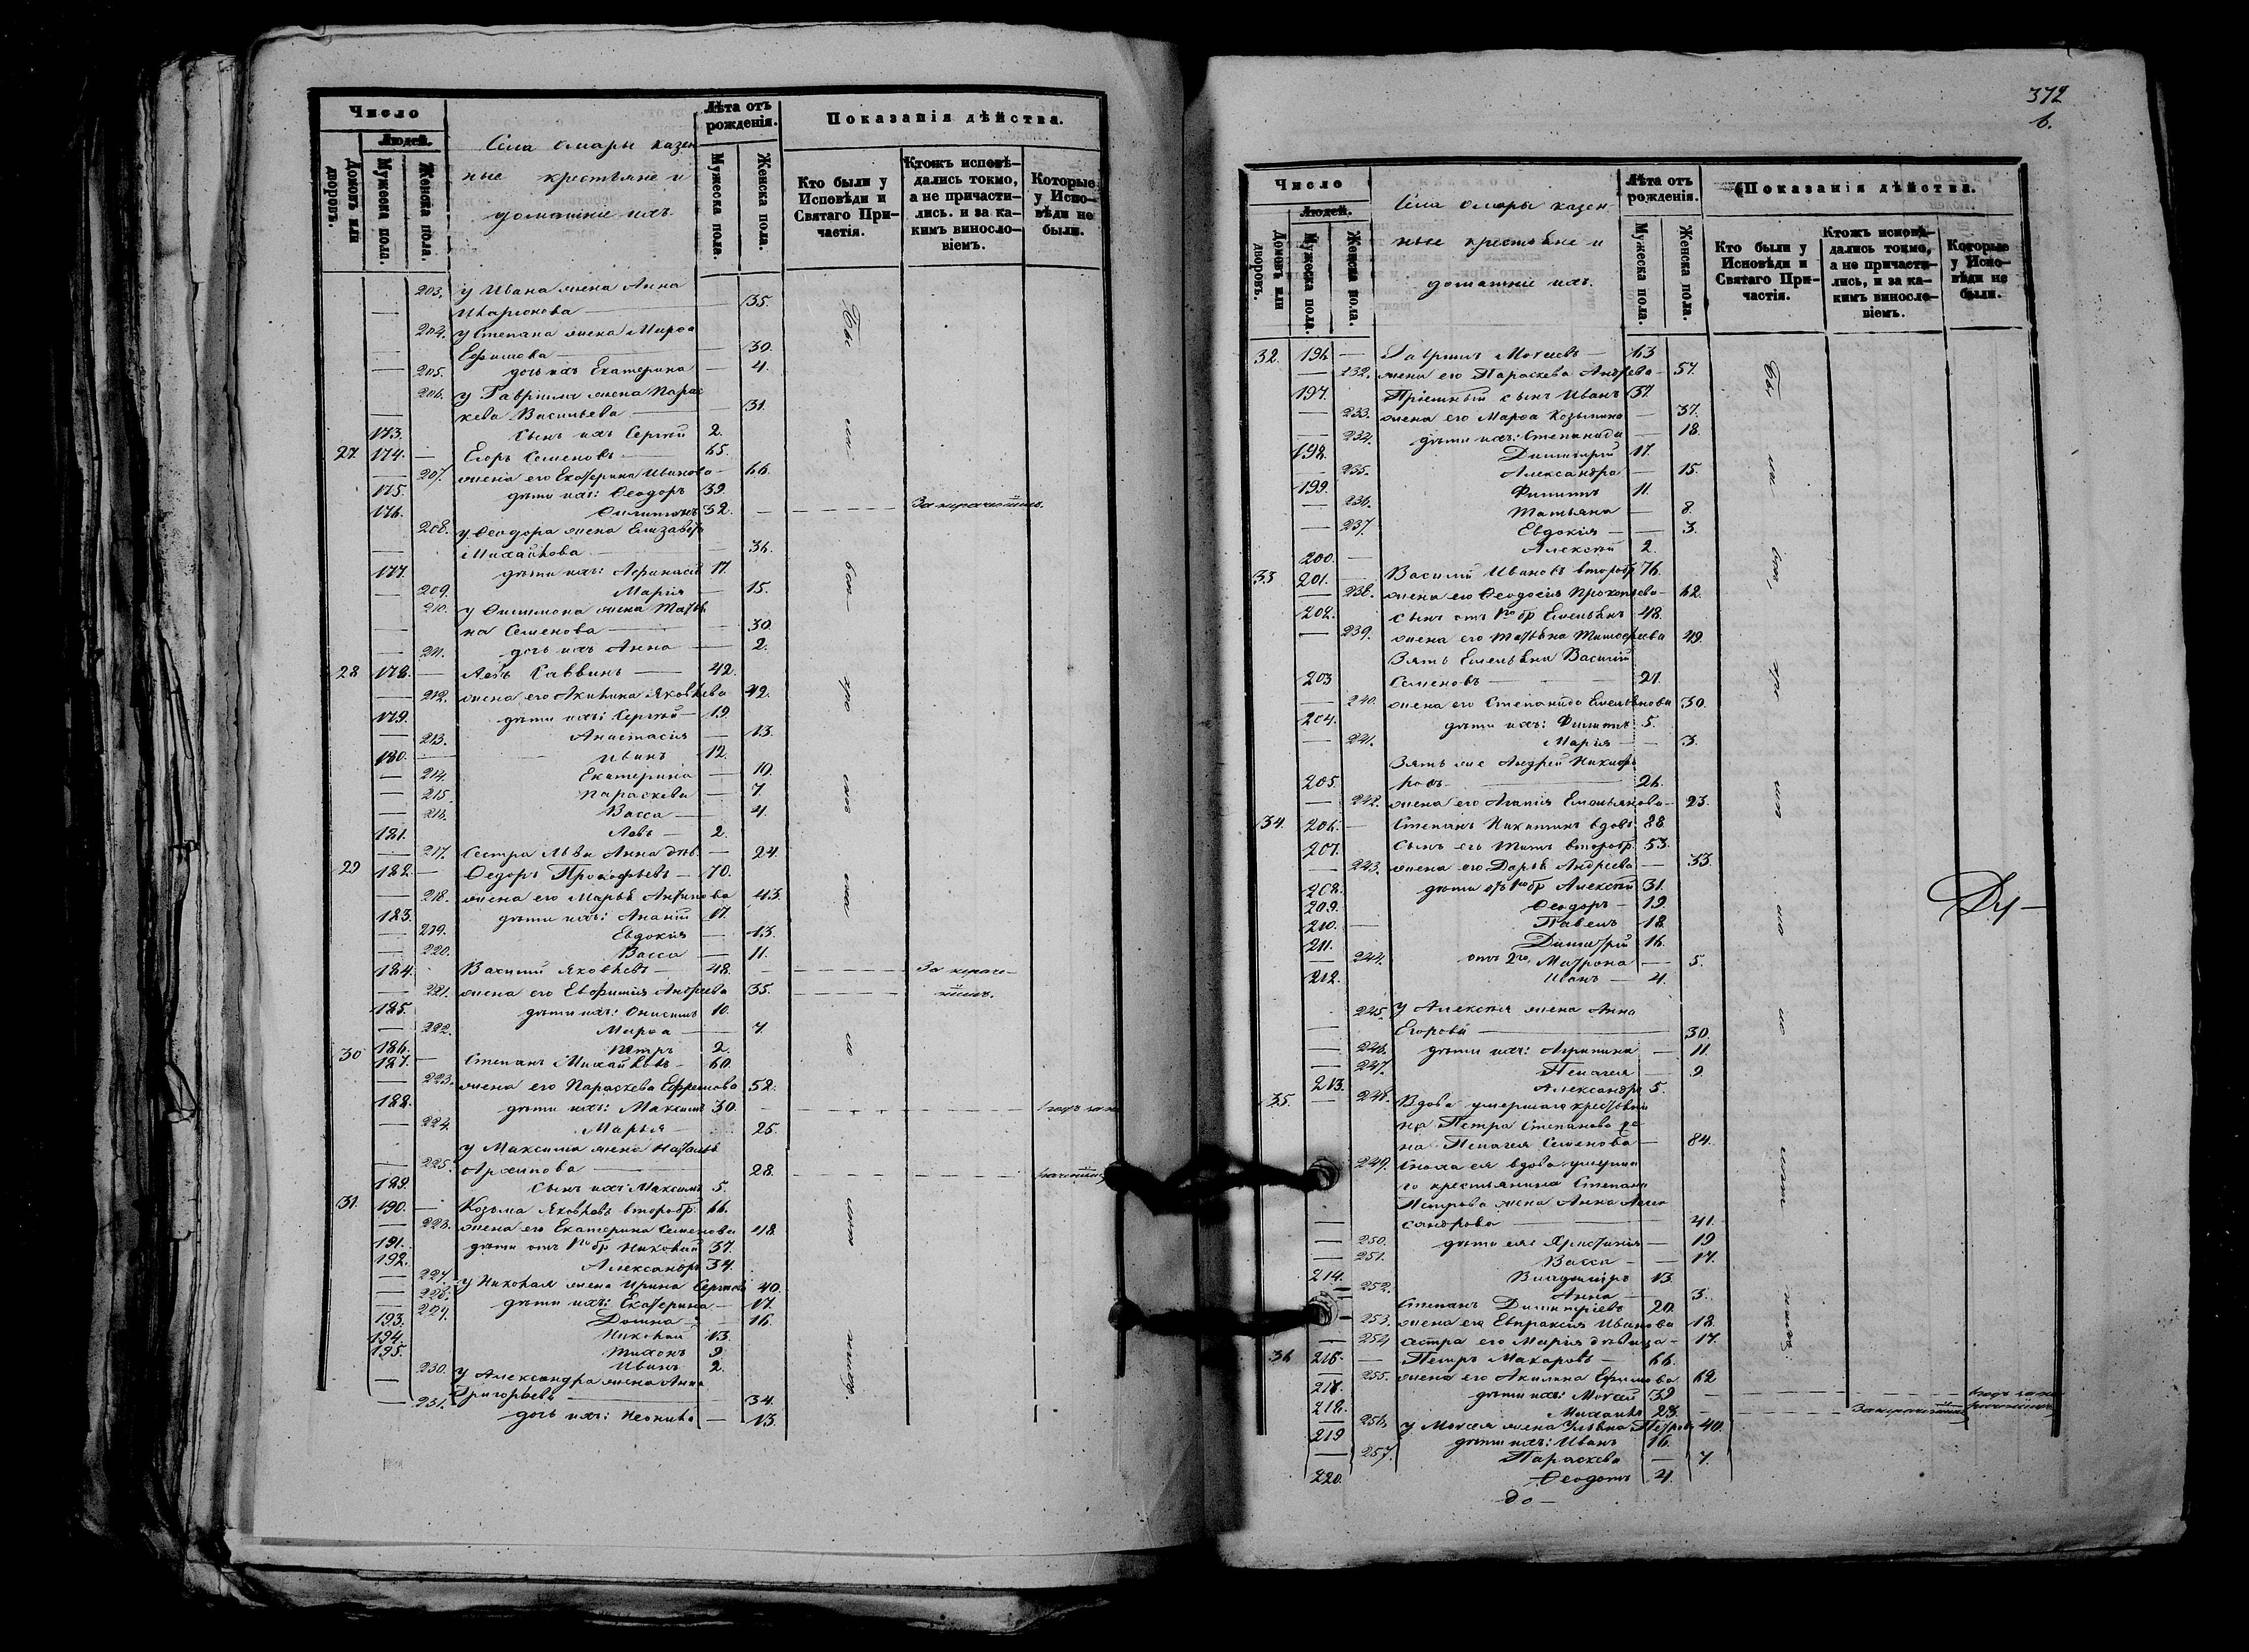 Число
Людей.
Домовъ или дворовъ.
Мужеска пола.
Женска пола.
Села Омары казен
ные крестьяне и
домашние ихъ.
Лѣта отъ рожденія.
Мужеска пола.
Женска пола.
Показанія дѣйства.
Кто были у Исповѣди и Святаго Причастія.
Ктожъ исповѣдались токмо, а не причастились. и за какимъ винословіемъ.
Которые у Исповѣди не были.
203. у Ивана жена Анна
— Иларионова — 35.
204. у Степана жена Марѳа
— Ефимова — 30.
— 205. дочь ихъ Екатерина — 4.
206. у Гавріила жена Парас
— кева Васильева — 31.
173. Сынъ ихъ Сергѣй 2.
27. 174. — Егоръ Семеновъ 65.
— 207. жена его Екатерина Иванова 66.
175. дѣти ихъ: Ѳеодоръ 39.
176. Филимонъ 32.
208. у Ѳеодора жена Елизавета
— Михайлова — 36.
177. дѣти ихъ: Афанасій 17.
— 209. Марія — 15.
210. у Филимона жена Татья
— на Семенова — 30.
— 211. дочь ихъ Анна — 2.
28 178. — Левъ Саввинъ — 42.
— 212. жена его Акилина Яковлева 42.
179. дѣти ихъ: Сергѣй — 19.
— 213. Анастасія — 13.
180. — Иванъ 12.
— 214. Екатерина — 10.
— 215. Параскева — 7.
— 216. Васса — 4.
181. Левъ — 2.
— 217. Сестра Льва Анна дѣв. — 24.
29 182. — Ѳедоръ Прокофьевъ — 70.
— 218. жена его Марья 43.
183. дѣти ихъ: Ананій 17.
— 219. Евдокія — 13.
— 220. Васса — 11.
184. Василій Яковлевъ — 48.
— 221. жена его Евфимія Андреева 35.
185. дѣти ихъ: Онисимъ 10.
— 222. Марѳа — 7.
186. Петръ 2.
30 187. — Степанъ Михайловъ — 60.
— 223. жена его Параскева Ефремова 52.
188. дѣти ихъ: Максимъ 30.
— 224. Марья — 25.
у Максима жена Наталья
— 225. Архипова — 28.
189. Сынъ ихъ: Максимъ 5.
31. 190. — Козьма Яковлевъ второбр. 66.
— 226. жена его Екатерина Семенова 48.
191. дѣти отъ 1го бр Николай 37.
192. Александръ 34.
— 227. у Николая жена Ирина Сергеева 40.
— 228. дѣти ихъ: Екатерина — 17.
— 229. Домна — 16.
193. Николай 13.
194. Тихонъ 9
195. Иванъ 2.
230. у Александра жена Анна
— Григорьева — 34.
— 231. дочь ихъ: Неонила — 13.
372
6.
Число
Людей.
Домовъ или дворовъ.
Мужеска пола.
Женска пола.
Села Омары казен
ные крестьяне и
домашние ихъ.
Лѣта отъ рожденія.
Мужеска пола.
Женска пола.
Показанія дѣйства.
Кто были у Исповѣди и Святаго Причастія.
Ктожъ исповѣдались токмо, а не причастились, и за какимъ винословіемъ.
Которые у Исповѣди не были.
32. 196. — Гавріилъ Моисеевъ — 63
— 232. жена его Параскева Андреева — 57.
197. Пріемный сынъ Иванъ 37.
— 233. жена его Марѳа Козьмина — 37.
— 234. дѣти ихъ: Степанида — 18.
198. Димитрій 17.
— 235. Александра — 15.
199. Филиппъ 11.
— 236. Татьяна — 8.
— 237. Евдокія — 3.
200. — Алексѣй 2.
33 201. — Василій Ивановъ второбр. 76.
— 238. жена его Ѳеодосія Прокопьева 62.
202. сынъ отъ 1го бр Емельянъ 48.
— 239. жена его Татьяна Тимофеева 49.
Зять Емельяна Василій
203 Семеновъ — 21.
— 240. жена его Степанида Емельянова 30.
204. дѣти ихъ: Филиппъ 5.
— 241. Марія — 3.
Андрей Никифо
205. ровъ — 26.
— 242. жена его Агапія Емельянова — 23.
34. 206. — Степанъ Никитинъ вдовъ 88.
207. Сынъ его Титъ второбр. 53.
— 243. жена его Дарья Андреева — 33.
208. дѣти отъ 1го бр Алексѣй 31.
209. Ѳеодоръ — 19.
210. — Павелъ 18.
211. Димитрій 16.
— 244. отъ 2го Матрона — 5.
212. Иванъ — 4.
245. у Алексѣя жена Анна
— Егорова — 30.
— 246. дѣти ихъ: Агрипина — 11.
— 247. Пелагея — 9.
213. Александръ 5.
35. — 248. Вдова умершаго крестьяни
на Петра Степанова же
на Пелагея Семенова — 84.
249. Сноха ея вдова умерша
го крестьянина Степана
Петрова жена Анна Алек
— сандрова — 41.
— 250. дѣти ея: Христинія — 19
— 251. Васса — 17.
214. Владиміръ 13.
— 252. Анна — 3.
Степанъ Димитріевъ 20.
— 253. жена его Евпраксія Иванова 18.
— 254 сестра его Марія дѣвица — 17.
36 216. — Петръ Макаровъ — 66.
— 255. жена его Акилина Ефимова 62
217. дѣти ихъ: Моисей 39
218. Михаилъ 23.
— 256. у Моисея жена Ульяна Петрова 40.
219 дѣти ихъ: Иванъ 16.
— 257. Параскева — 7.
220. Ѳеодотъ 4.